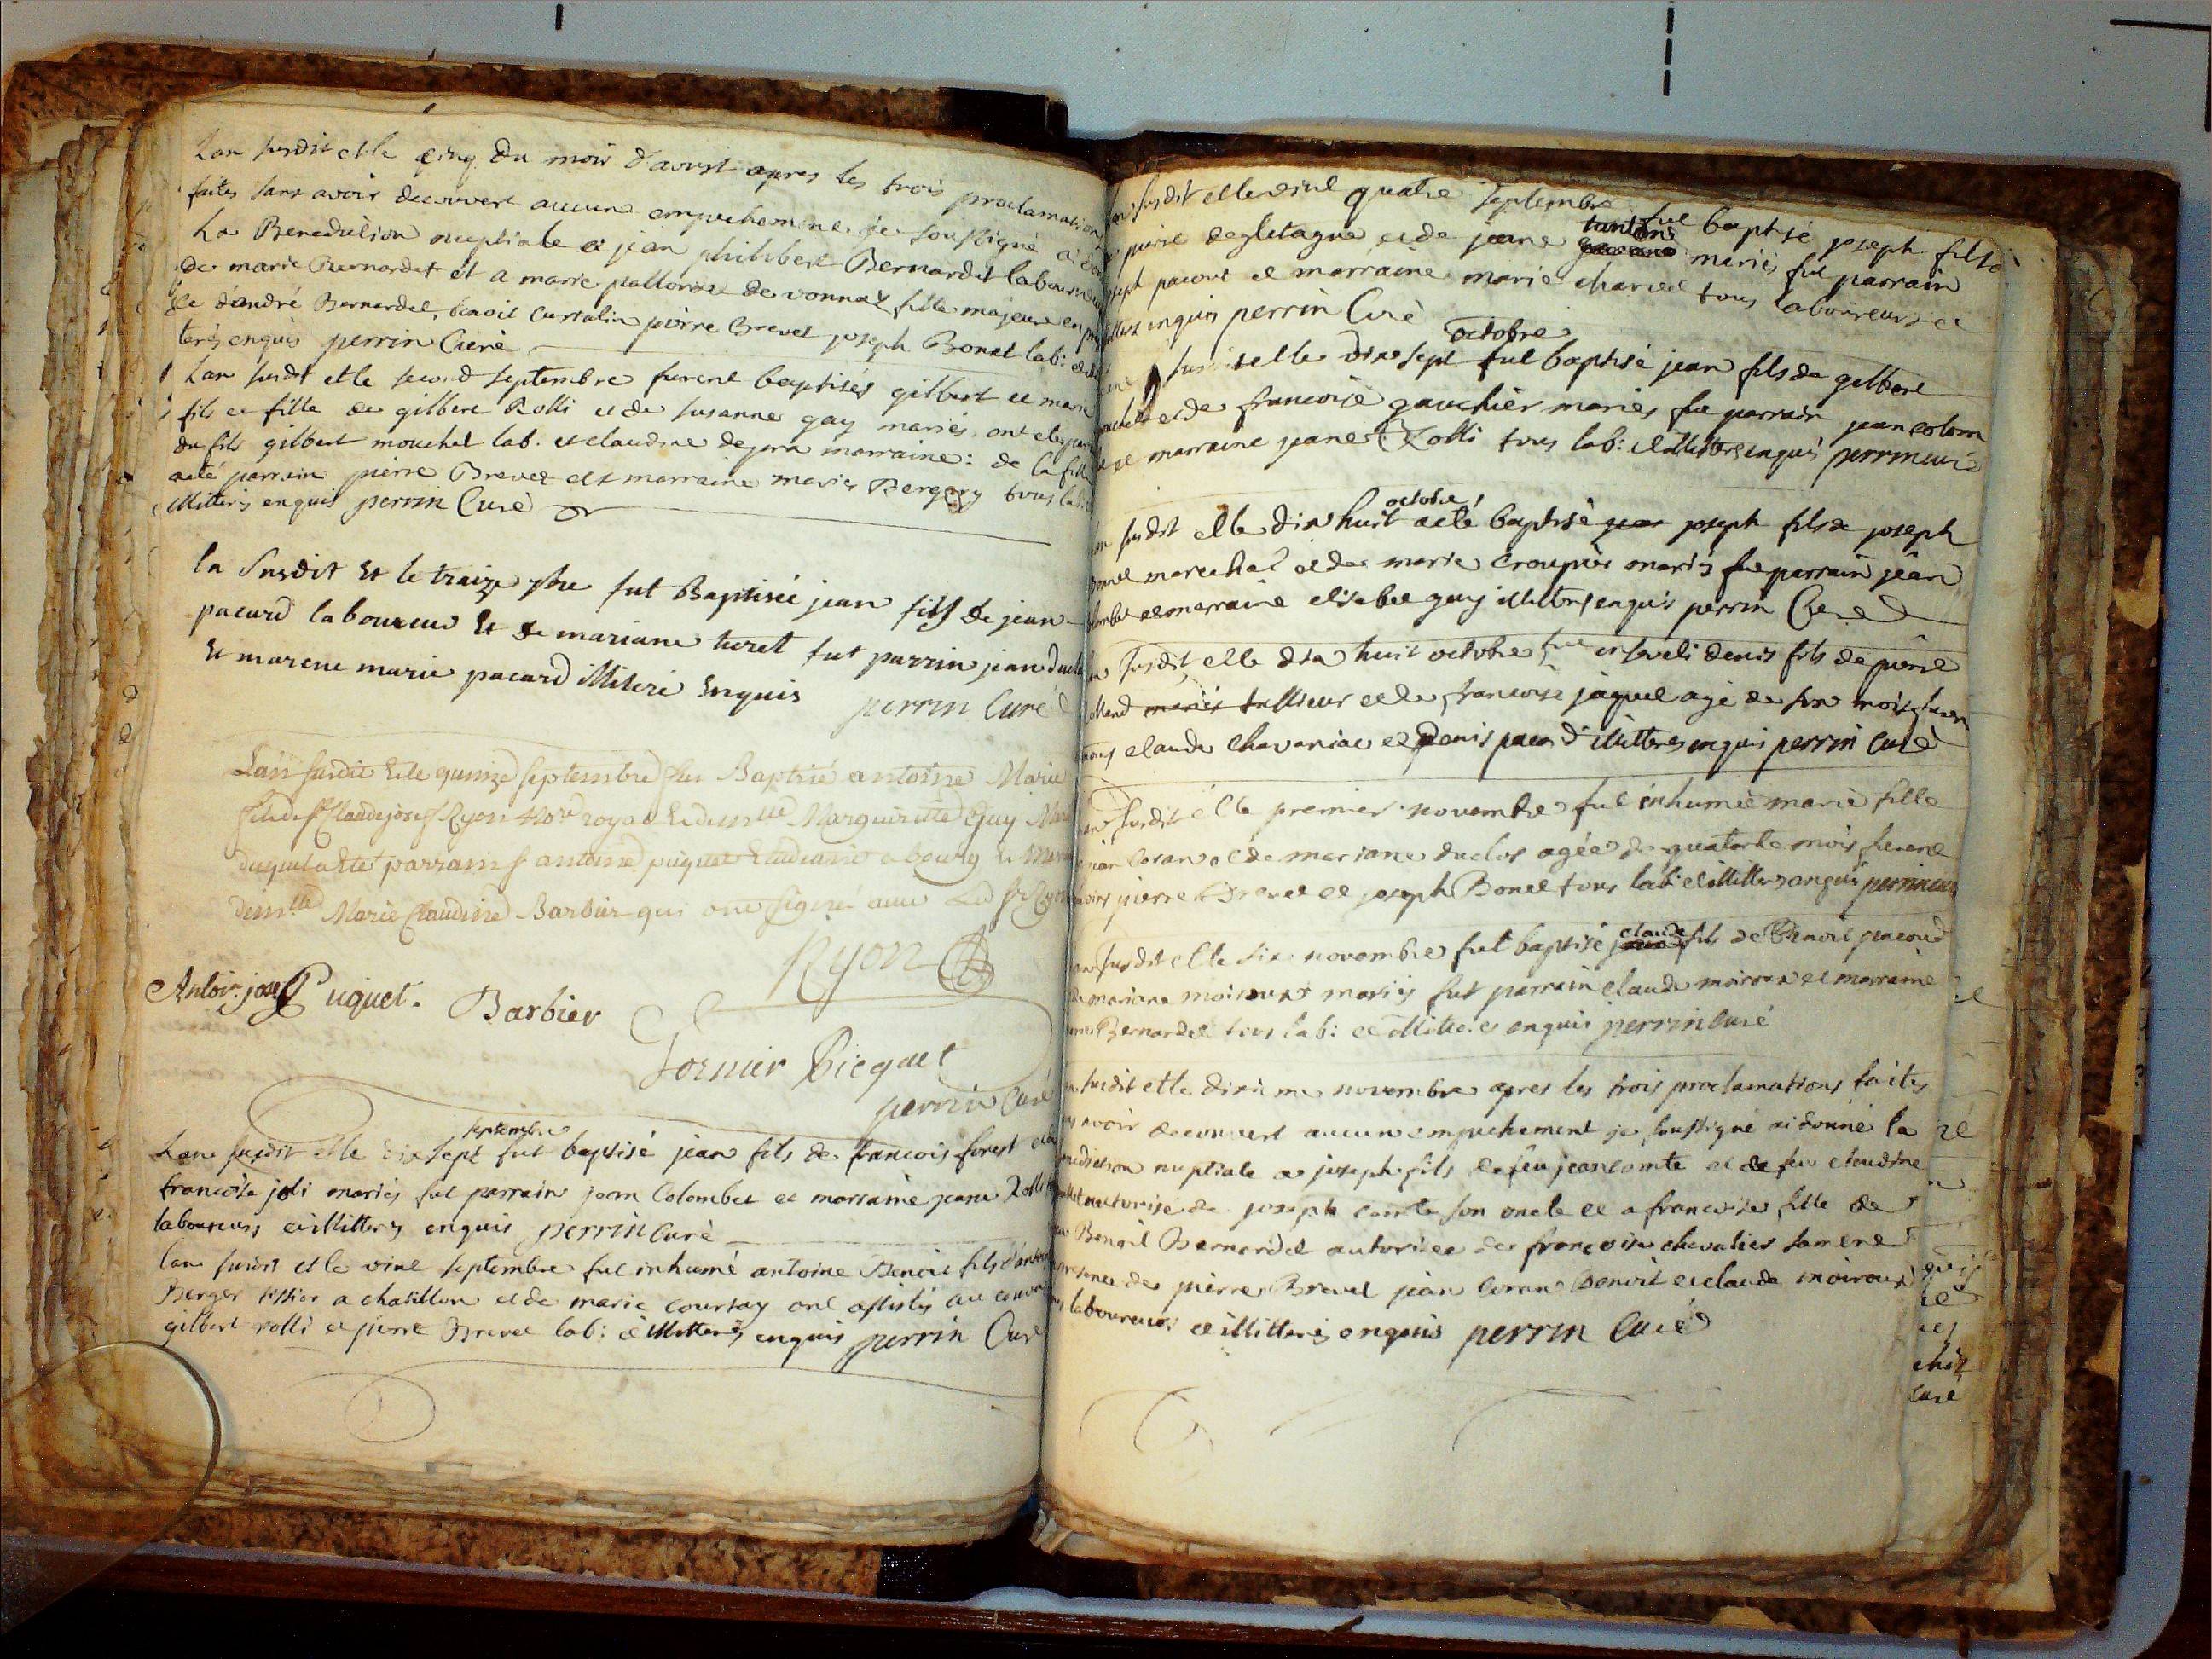 Lan susdit et le cinq du mois d'avist apres les trois proclamations
faites sans avoir decouvert aucun empechement je soussigné ai
La Benediction nuptiale a jean philibert Bernardet laboureur
de marie Bernardet et a marie de vonnas fille majeure en
de d'andré Bernardel, benoit curtalin pierre Brevet joseph Bonet lab: et
terés enquis perrin Curé
Lan susdit et le second septembre furent baptisés gilbert et marie
fils et fille de gilbert Rolli et de susanne gay mariés ont eté
du fils gilbert mouchet lab. et claudine marraine: de la fille
aeté parrain pierre Brevet et marraine marie Bergery tous
illitterés enquis perrin Curé
la susdit Et le traize 7bre fut Baptisée jean fils de jean
pacard laboureur Et de mariane turel fut parrin jean
Et marene marie pacard illiteré Enquis perrin Curé
Lan susdit Et le quinze septembre fut Baptisé antoine Marie
fils de Sr Claude josef Ryon Nore royal Et de Marguerite Guy
duquel a eté parrain Sr antoine puquet a bourg Et
demlle Marie Claudine Barbier qui ont signé avec Led Sr Ryon
Ryon
Antoi. jose Puquet. Barbier
Picquet
perrin Curé
septembre
Lan susdit et le dix sept fut baptisé jean fils de francois forest et
francoise joli mariés fut parrain jean Colombet et marraine jeane Rolli
laboureurs et illitterés enquis perrin curé
lan susdit et le vint septembre fut inhumé antoine Benoit fils
Berger tissier a chatillon et de marie coursay ont assistés au
gilbert rolli et pierre Brevet lab: et illitterés enquis perrin Curé
susdit et le vint quatre septembre fut baptisé joseph fils
tantone
pierre degletagne et de jeane mariés fut parrain
joseph pacout et marraine marie charvet tous laboureurs et
enquis perrin Curé
octobre
susdit et le dix sept fut baptisé jean fils de gilbert
et de francoise gauchier mariés fut parrain jean colom
et marraine jeane Rolli tous lab: et illitterés enquis perrin curé
octobre
susdit et le dix huit aeté baptisé jean joseph fils de joseph
Bonnet marechal et de marie Croupier mariés fut parrain jean
et marraine elisabet guy illitterés enquis perrin Curé
susdit et le dix huit octobre fut enseveli denis fils de pierre
mariés tallieur et de francoise jaquet agé de six mois
claude Chavaniac et Denis pacod illitterés enquis perrin curé
susdit et le premier novembre fut inhumée marie fille
jean Coran et de mariane duclos agée de quatorte mois furent
pierre Brevet et joseph Bonet tous lab: et illitterés enquis perrin curé
claude
susdit et le six novembre fut baptisé jean fils de Benoit pacoud
de mariane moiroux mariés fut parrain claude moiroux et marraine
Bernardel tous lab: et illitterés enquis perrin curé
susdit et le dixieme novembre apres les trois proclamations faites
avoir decouvert aucun empechement je soussigné ai donné la
benediction nuptiale a joseph fils de feu jean comte et de feu claudine
autorisé de joseph comte son oncle et a francoise fille de
Benoit Bernardel autorisée de francoise chevalier sa mere
presence de pierre Brevet jean Coran Benoit et claude moiroux
laboureurs et illitterés enquis perrin Curé
ré
chat
curé